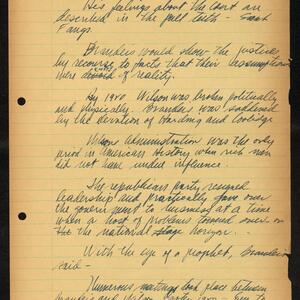 His feelings about the Court are
described in the full text - Saint
Fangs.
Brandeis would show the justice
by recourse to facts that their assumptions
were devoid of reality.
By 1920 Wilson was broken politically
and physically. Brandeis was saddened
by the devotion of Harding and Coolidge
Wilson's administration was the only
period in American history when rich men
did not have undue influence.
The republican party resigned
leadership and practically gave over
the government to business at a time
when a host of problems loomed over
the the national stage horizon.
With the eye of a prophet, Brandeis
said -
Numerous meetings took place between